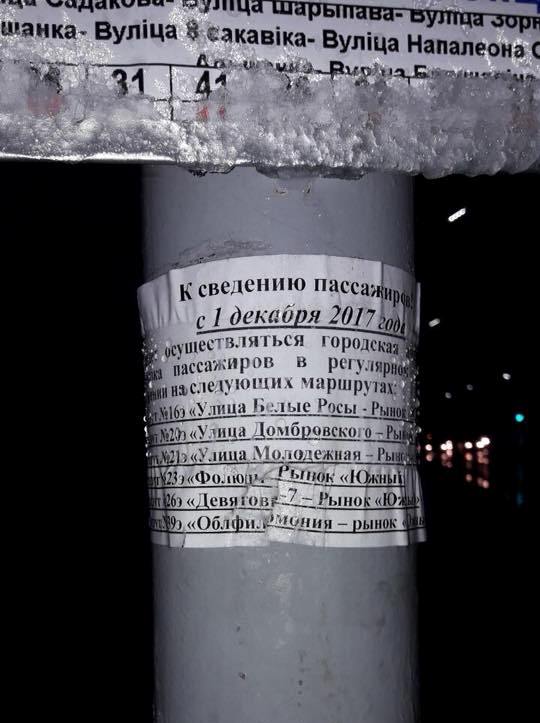 Садакова- Вуліца Шарыпава- Вуліца Зорн
шанка- Вуліца 8 сакавіка- Вуліца Напалеона О
31 41
К сведению пассажиров!
с 1 декабря 2017 года
осуществляться городская
пассажиров в регулярно
на следующих маршрутах:
№16э «Улица Белые Росы - Рынок
№20э «Улица Домбровского – Рын
№21э «Улица Молодежная – Рын
№23э «Фолюш – Рынок «Южный
№26э «Девятовка-7 – Рынок «Южн
39э «Облфилармония – рынок «